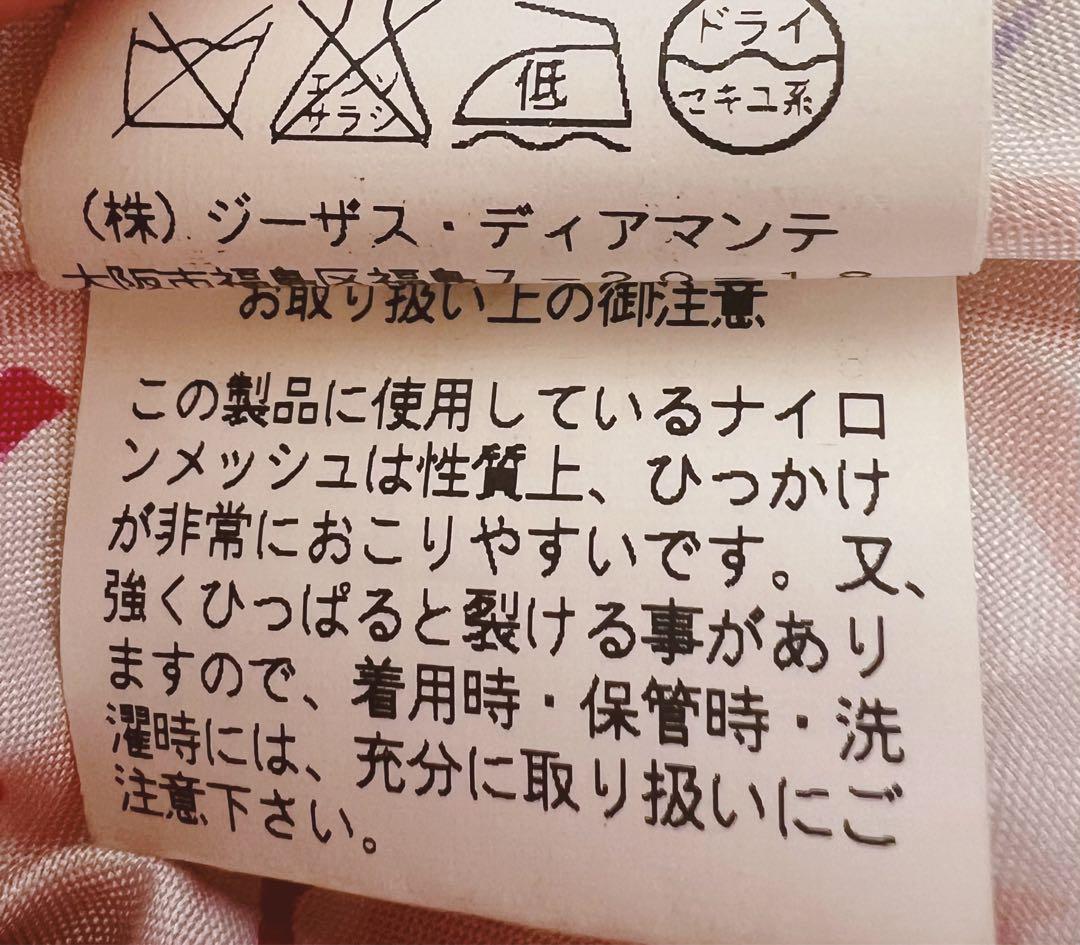 エンソ
サラシ
低
ドライ
セキユ系
(株)ジーザス・ディアマンテ
大阪市福島区福島7-20-18
お取り扱い上の御注意
この製品に使用しているナイロ
ンメッシュは性質上、ひっかけ
が非常におこりやすいです。又、
強くひっぱると裂ける事があり
ますので、着用時・保管時・洗
濯時には、充分に取り扱いにご
注意下さい。